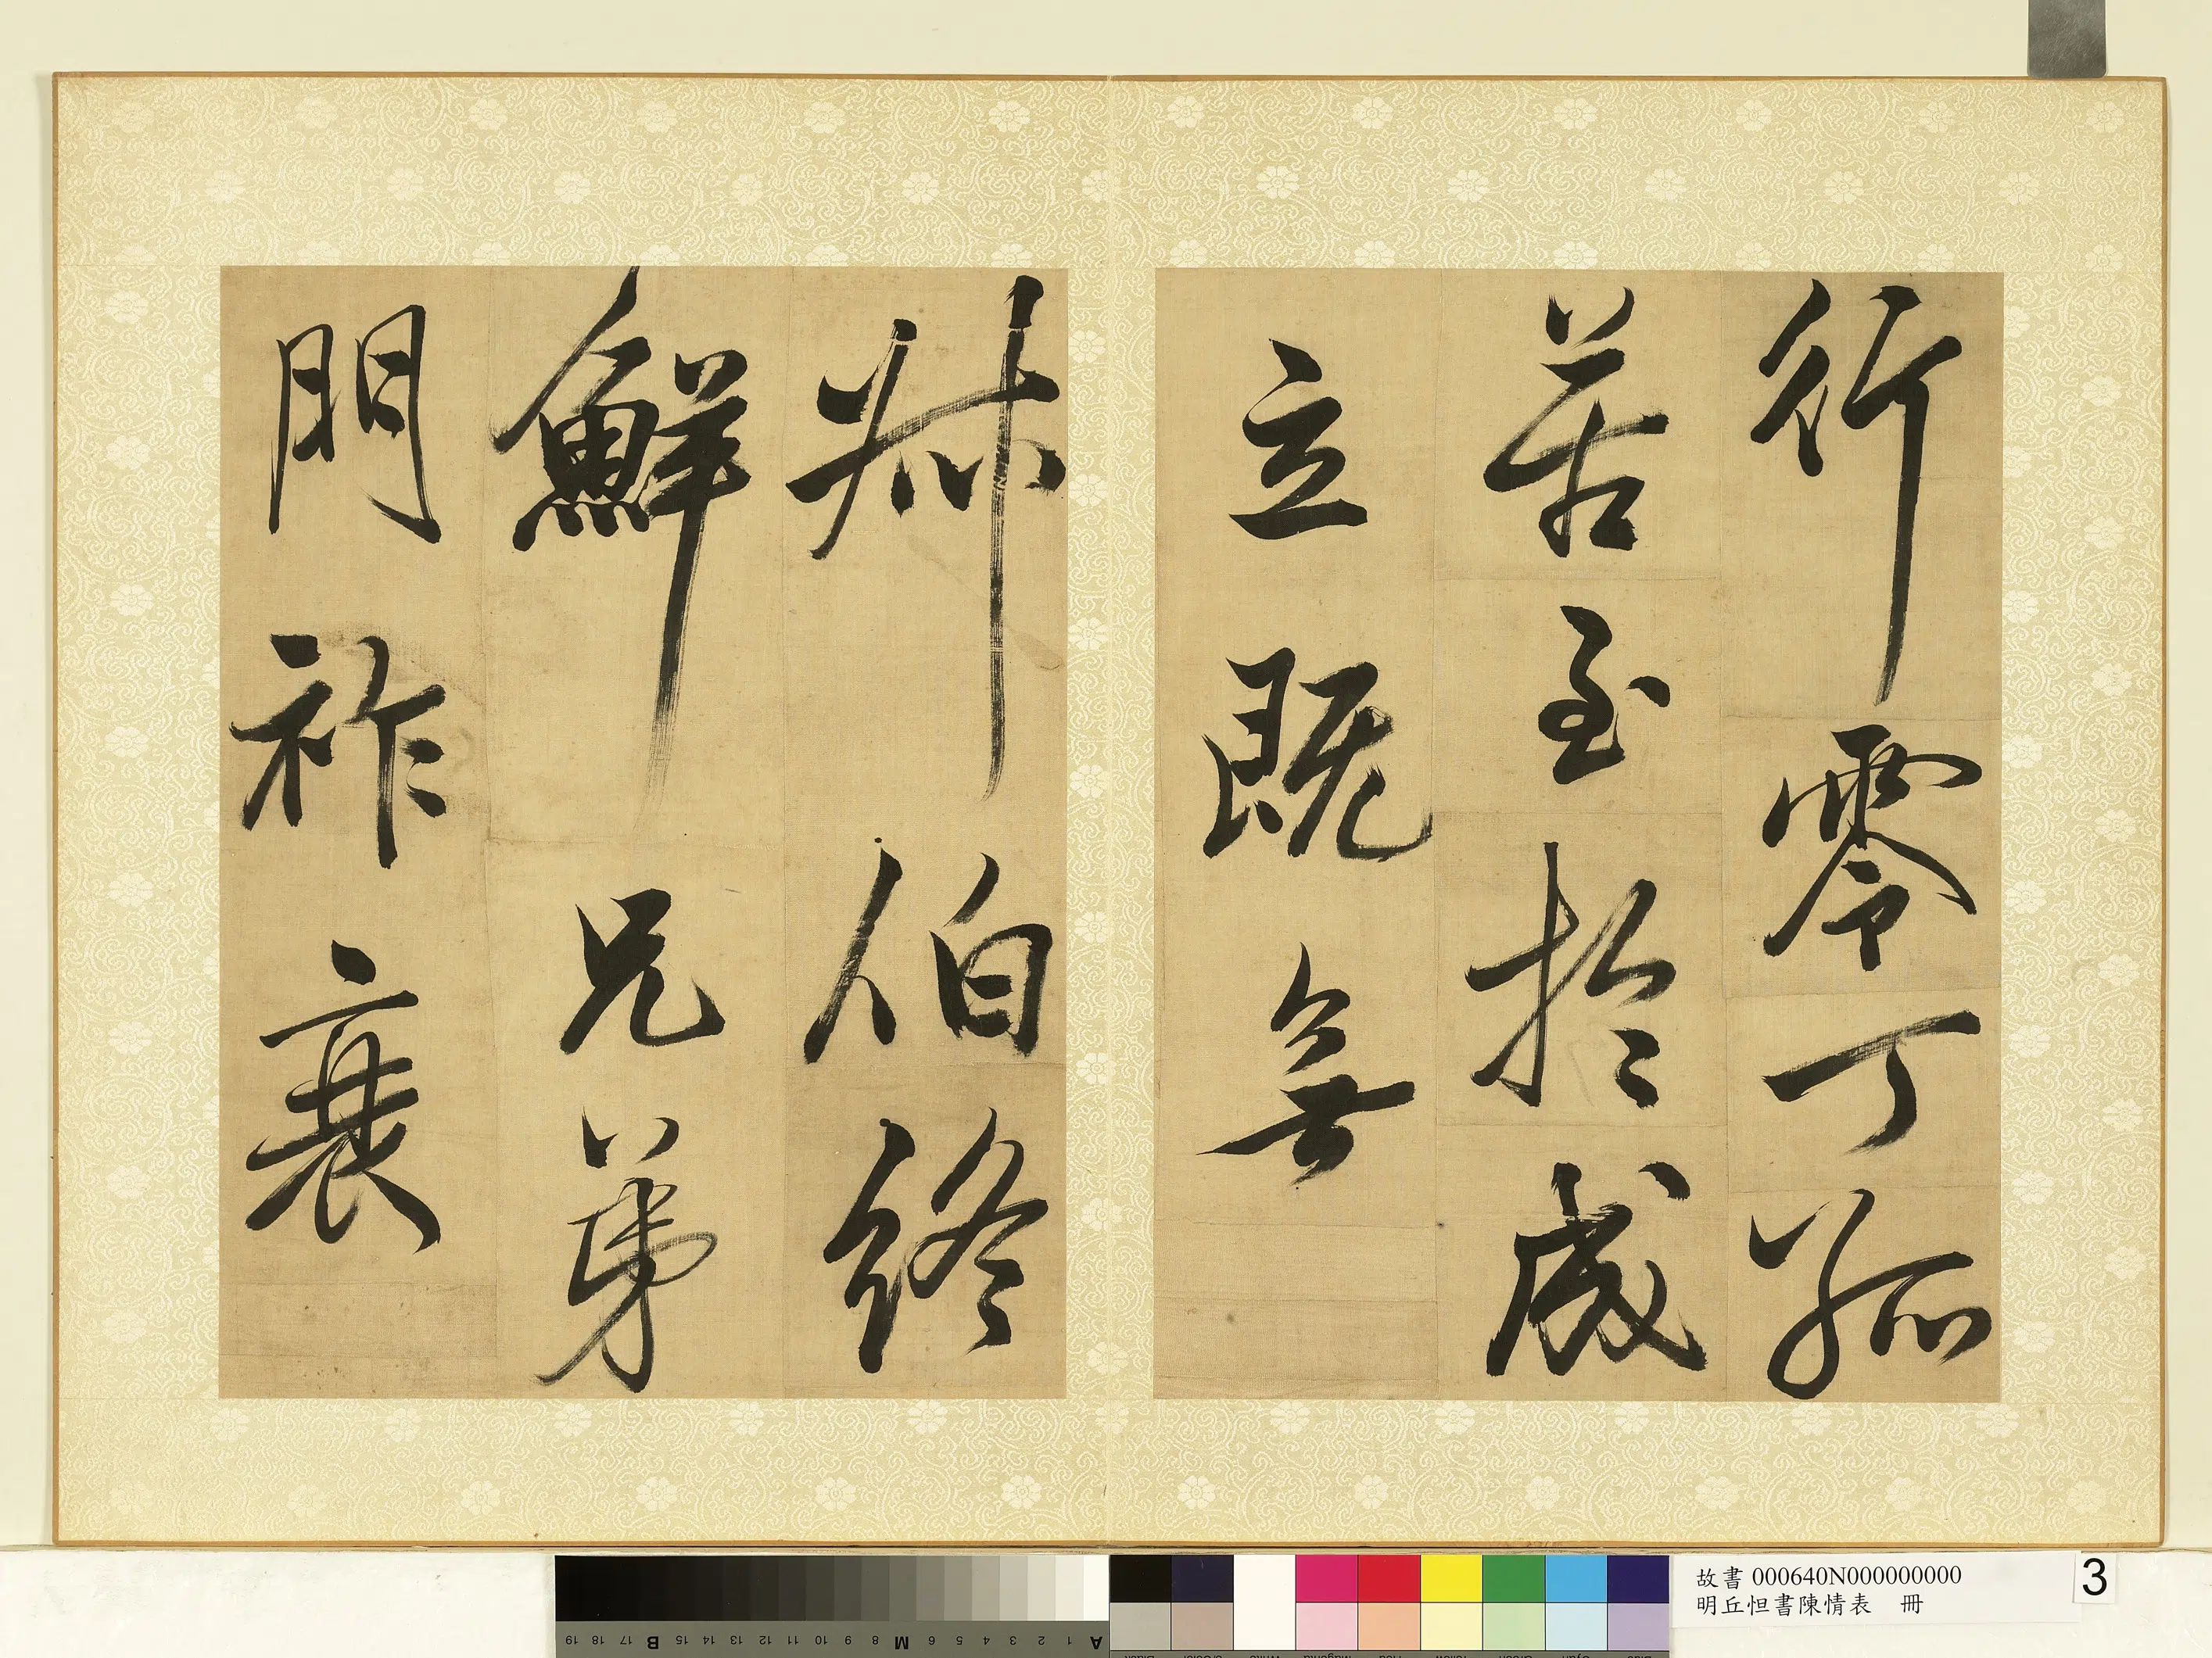 行零丁孤
苦至於成
立既無
叔伯終
鮮兄弟
門祚衰
故書 000640N000000000
明丘怛書陳情表　冊
3
A 1 2 3 4 5 6 M 8 9 10 11 12 13 14 15 B 17 18 19